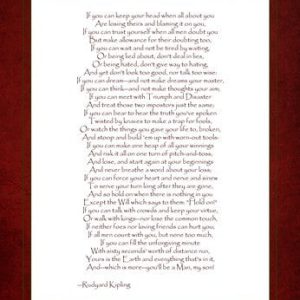 If you can keep your head when all about you
Are losing theirs and blaming it on you,
If you can trust yourself when all men doubt you
But make allowance for their doubting too,
If you can wait and not be tired by waiting,
Or being lied about, don't deal in lies,
Or being hated, don't give way to hating,
And yet don't look too good, nor talk too wise:
If you can dream—and not make dreams your master,
If you can think—and not make thoughts your aim,
If you can meet with Triumph and Disaster
And treat those two impostors just the same;
If you can bear to hear the truth you've spoken
Twisted by knaves to make a trap for fools,
Or watch the things you gave your life to, broken,
And stoop and build 'em up with worn-out tools:
If you can make one heap of all your winnings
And risk it all on one turn of pitch-and-toss,
And lose, and start again at your beginnings
And never breathe a word about your loss;
If you can force your heart and nerve and sinew
To serve your turn long after they are gone,
And so hold on when there is nothing in you
Except the Will which says to them: "Hold on!"
If you can talk with crowds and keep your virtue,
Or walk with kings—nor lose the common touch,
If neither foes nor loving friends can hurt you,
If all men count with you, but none too much,
If you can fill the unforgiving minute
With sixty seconds' worth of distance run,
Yours is the Earth and everything that's in it,
And—which is more—you'll be a Man, my son!
--Rudyard Kipling